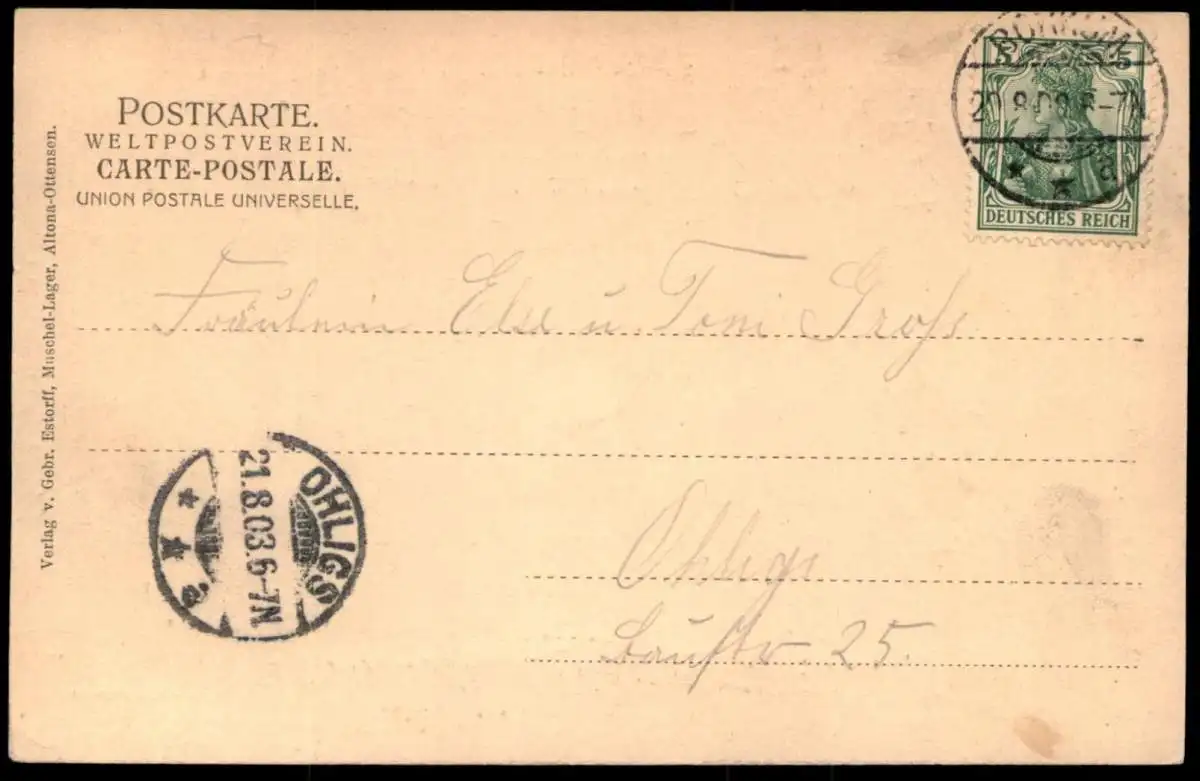 POSTKARTE.
WELTPOSTVEREIN.
CARTE-POSTALE.
UNION POSTALE UNIVERSELLE.
Verlag v. Gebr. Estorff, Muschel-Lager, Altona-Ottensen.
5 5
DEUTSCHES REICH
BORKUM
20.8.03.6-7N
* * a
Fräulein Else u Toni Groß
OHLIGS
21.8.03.6-7N
* * e.
Ohligs
Baustr. 25.